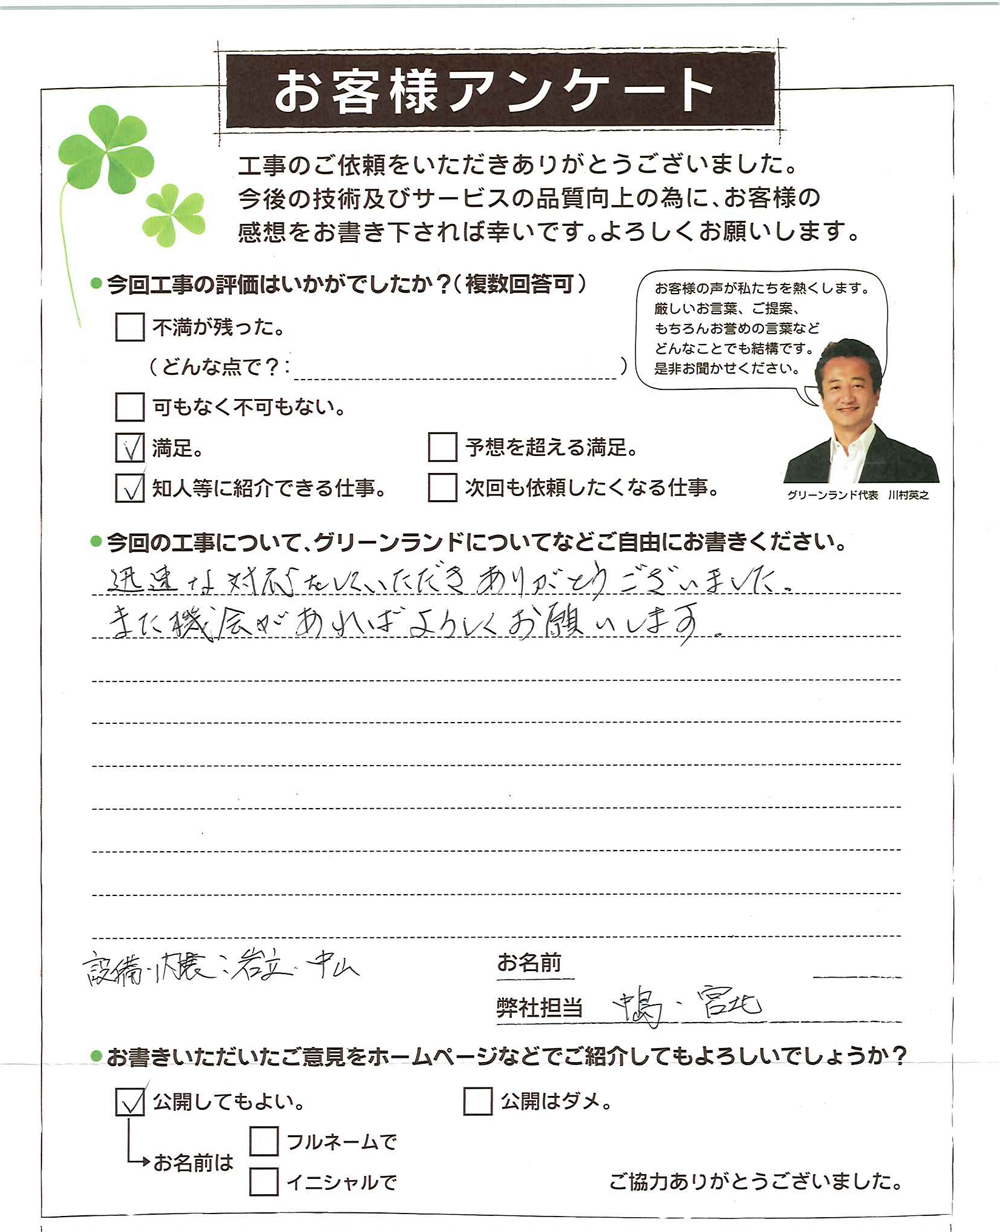 お客様アンケート
工事のご依頼をいただきありがとうございました。
今後の技術及びサービスの品質向上の為に、お客様の
感想をお書き下されば幸いです。よろしくお願いします。
●今回工事の評価はいかがでしたか？（複数回答可）
不満が残った。
（どんな点で？：　）
可もなく不可もない。
満足。
予想を超える満足。
知人等に紹介できる仕事。
次回も依頼したくなる仕事。
お客様の声が私たちを熱くします。
厳しいお言葉、ご提案、
もちろんお誉めの言葉など
どんなことでも結構です。
是非お聞かせください。
グリーンランド代表　川村英之
●今回の工事について、グリーンランドについてなどご自由にお書きください。
迅速な対応をしていただきありがとうございました。
また機会があればよろしくお願いします。
設備・内装：岩立・中山
お名前
弊社担当　中嶋・宮北
●お書きいただいたご意見をホームページなどでご紹介してもよろしいでしょうか？
公開してもよい。
公開はダメ。
お名前は
フルネームで
イニシャルで
ご協力ありがとうございました。